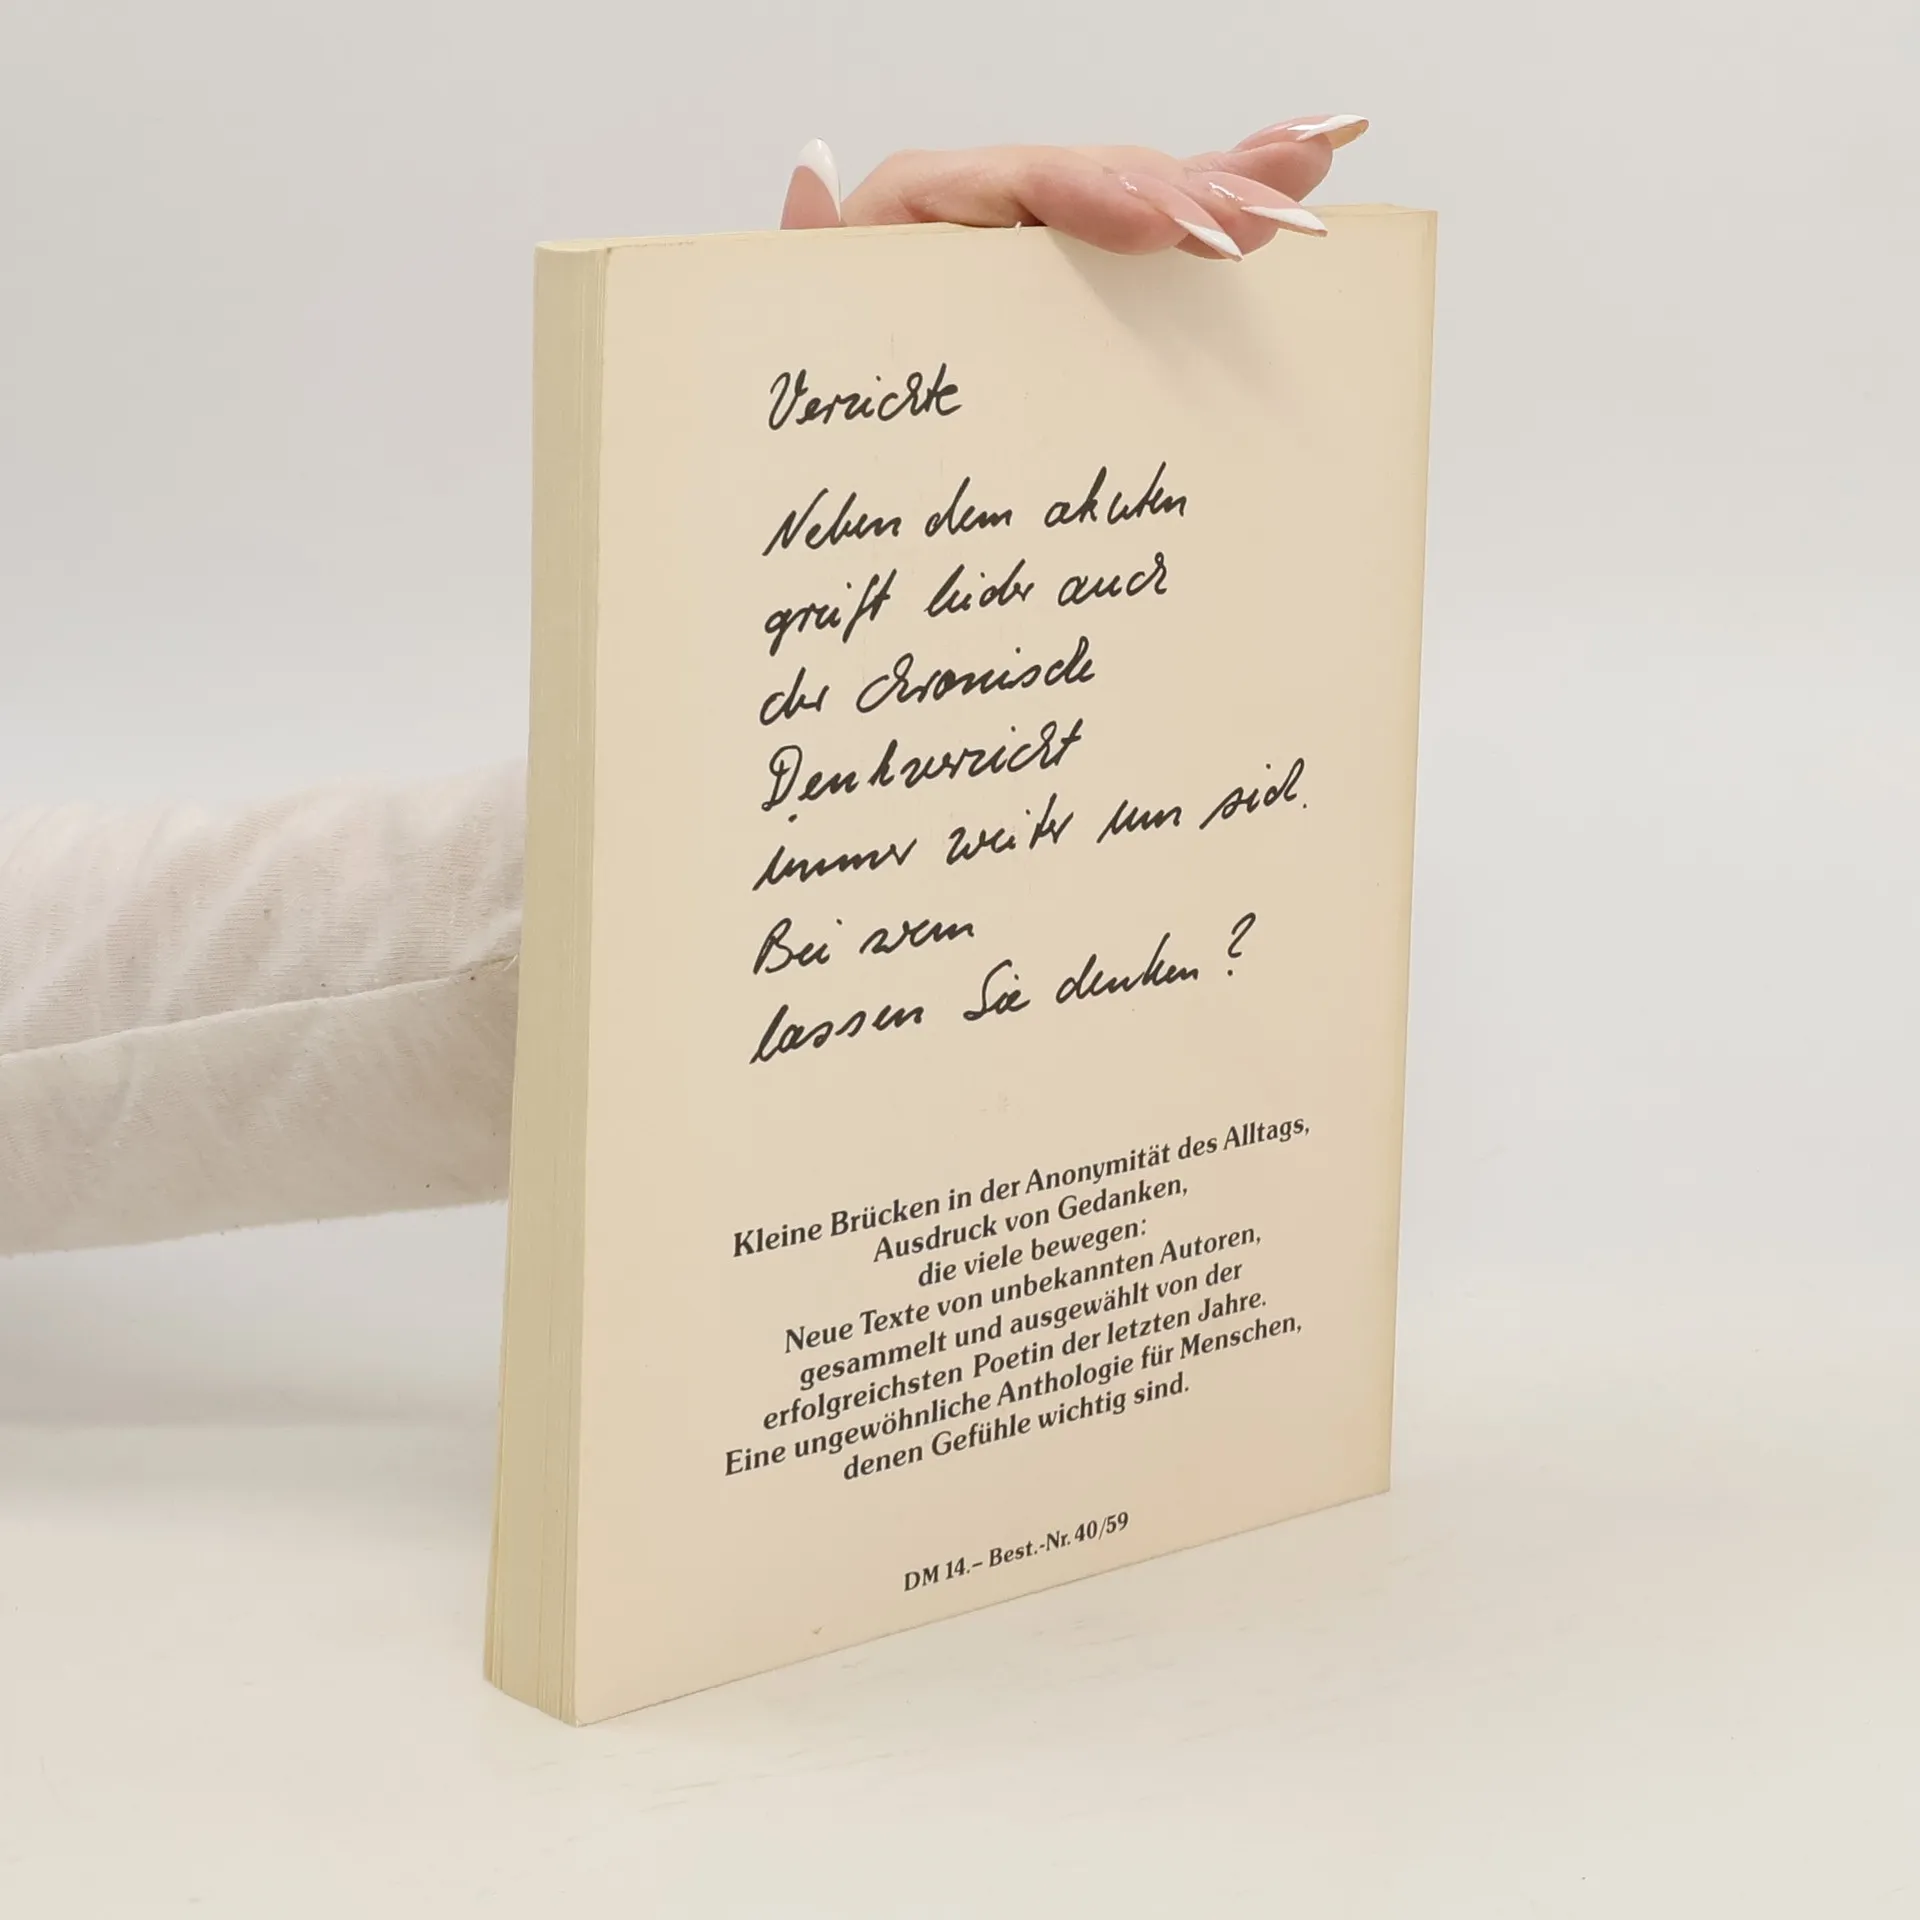 Verzichte
Neben dem akuten
greift leider auch
der chronische
Denkverzicht
immer weiter um sich.
Bei wem
lassen Sie denken?
Kleine Brücken in der Anonymität des Alltags,
Ausdruck von Gedanken,
die viele bewegen:
Neue Texte von unbekannten Autoren,
gesammelt und ausgewählt von der
erfolgreichsten Poetin der letzten Jahre.
Eine ungewöhnliche Anthologie für Menschen,
denen Gefühle wichtig sind.
DM 14.– Best.-Nr. 40/59